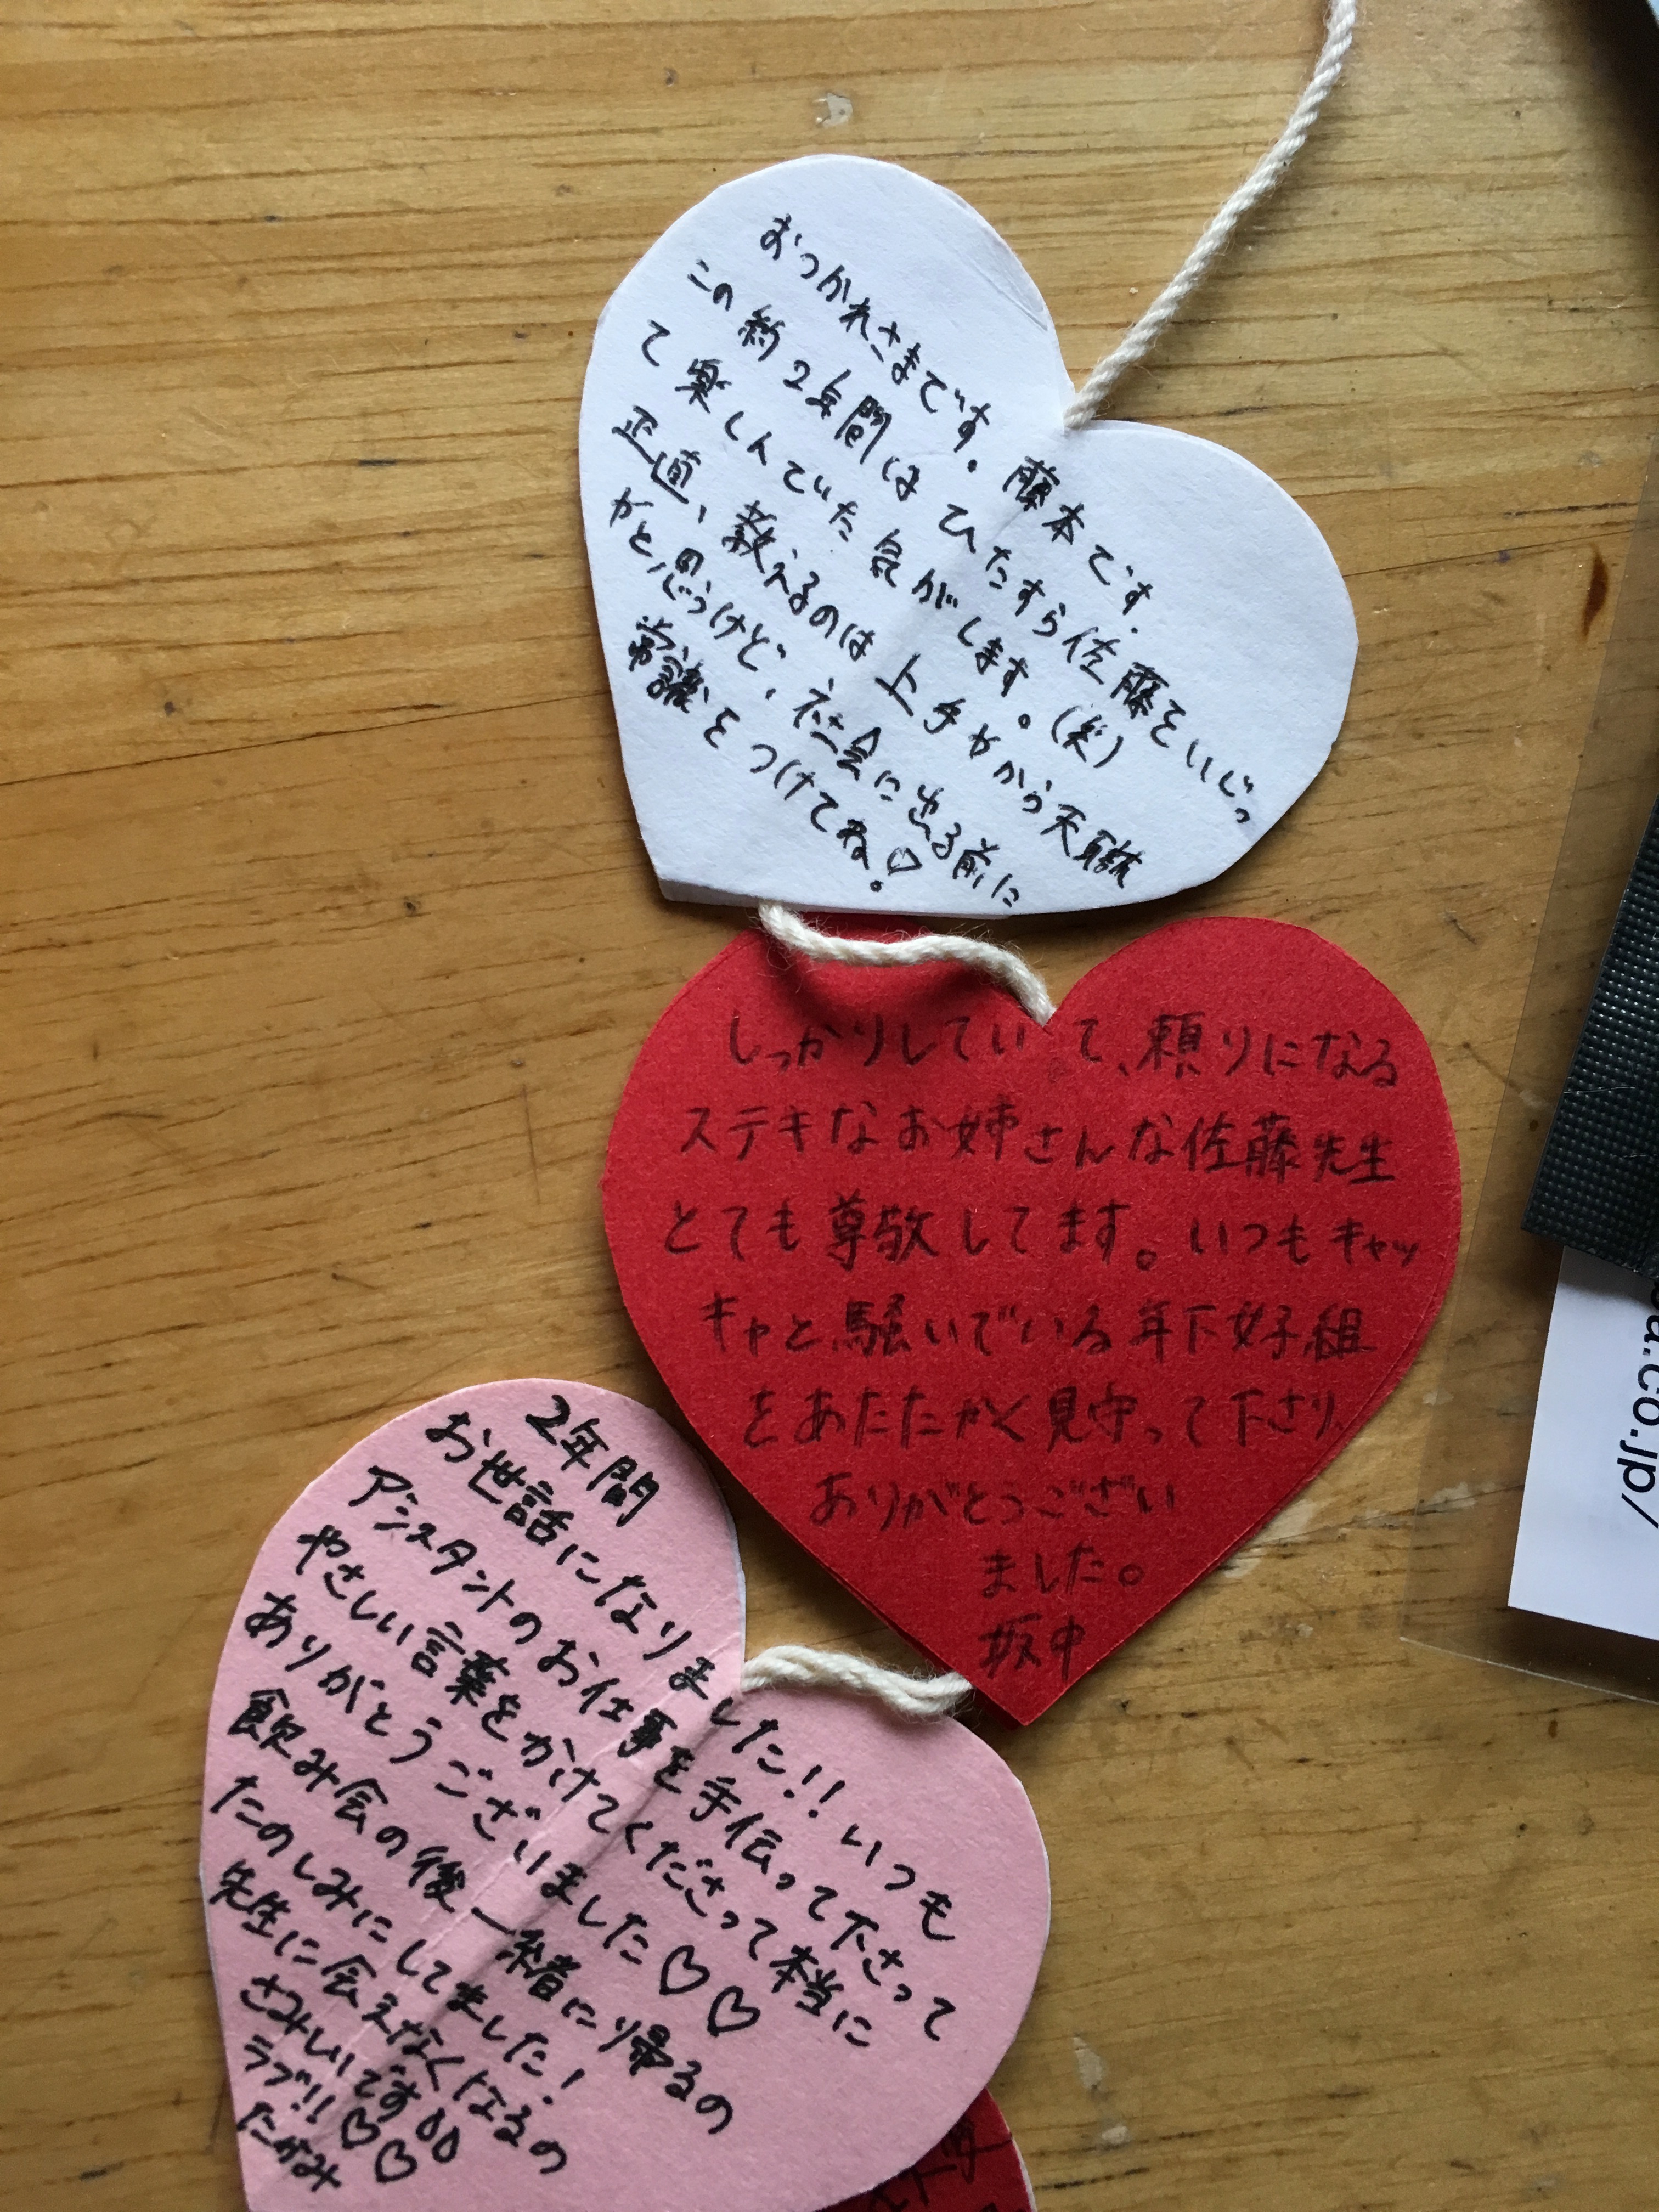 おつかれさまです。藤本です.
この約2年間はひたすら佐藤をいじっ
て楽しんでいた気がします。(笑)
正直、教えるのは上手かから天職
かと思うけど、社会に出る前に
常識をつけてね!♡
しっかりしていて、頼りになる
ステキなお姉さんな佐藤先生
とても尊敬してます。いつもキャッ
キャと騒いでいる年下女子組
をあたたかく見守って下さり
ありがとうござい
ました。
坂中
2年間
お世話になりました!!いつも
アシスタントのお仕事を手伝って下さって
やさしい言葉をかけてくださって本当に
ありがとうございました♡♡
飲み会の後一緒に帰るの
たのしみにしてました!
先生に会えなくなるの
さみしいです
ラブ!!♡♡
たかみ
a.co.jp/